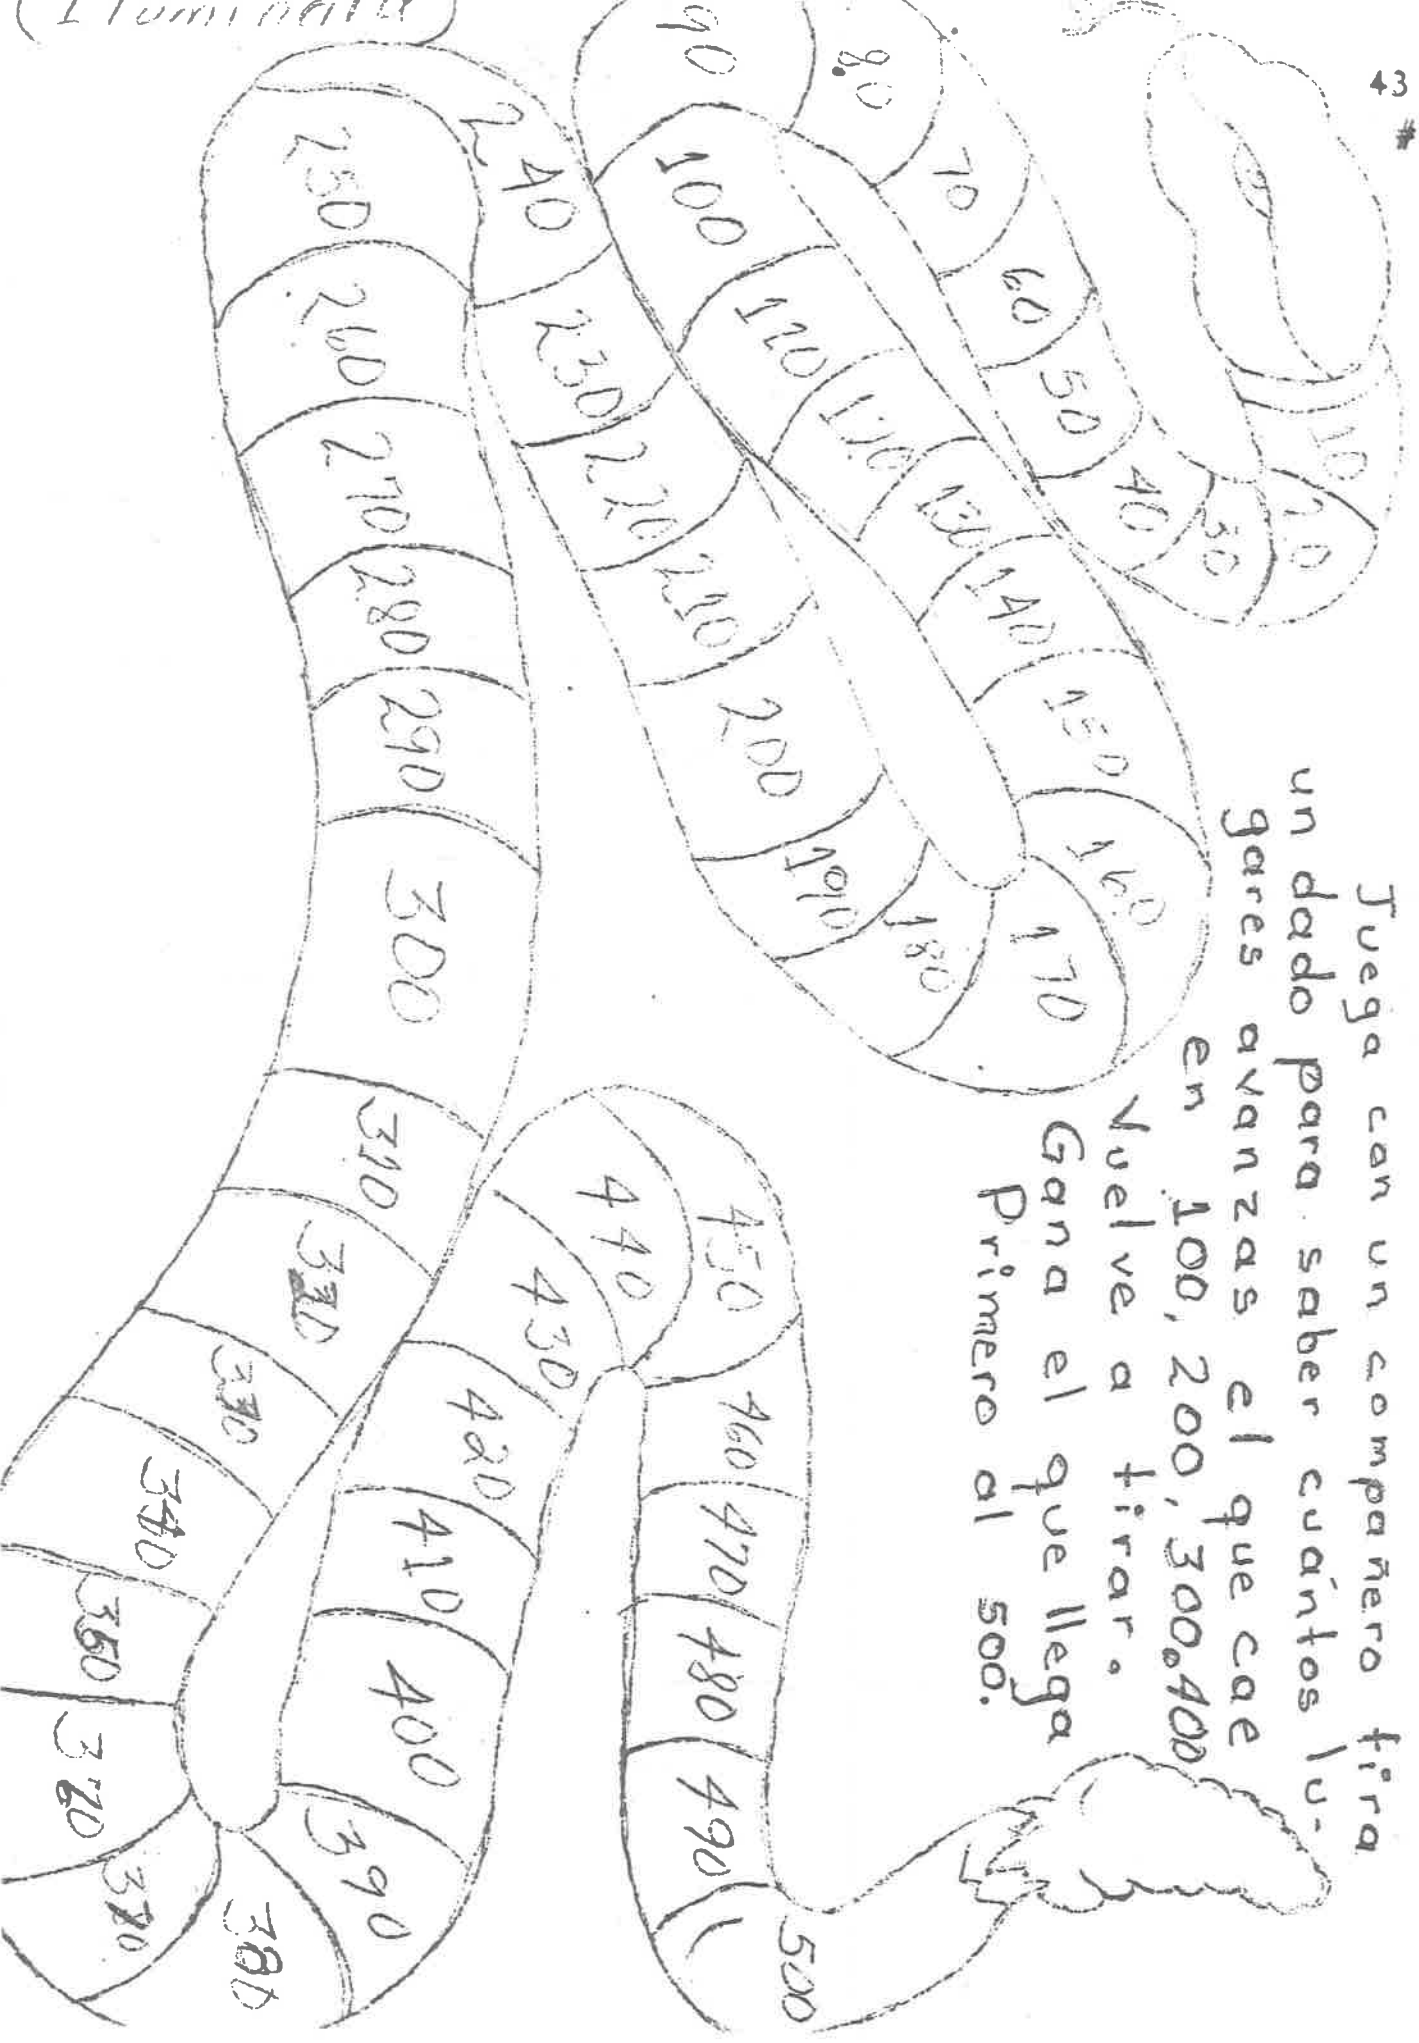 43
(Iluminala)
Juega con un compañero tira
un dado para saber cuántos lu-
gares avanzas el que cae
en 100, 200, 300, 400
Vuelve a tirar.
Gana el que llega
Primero al 500.
10
20
30
40
50
60
70
80
90
100
110
120
130
140
150
160
170
180
190
200
210
220
230
240
250
260
270
280
290
300
310
320
330
340
350
360
370
380
390
400
410
420
430
440
450
460
470
480
490
500